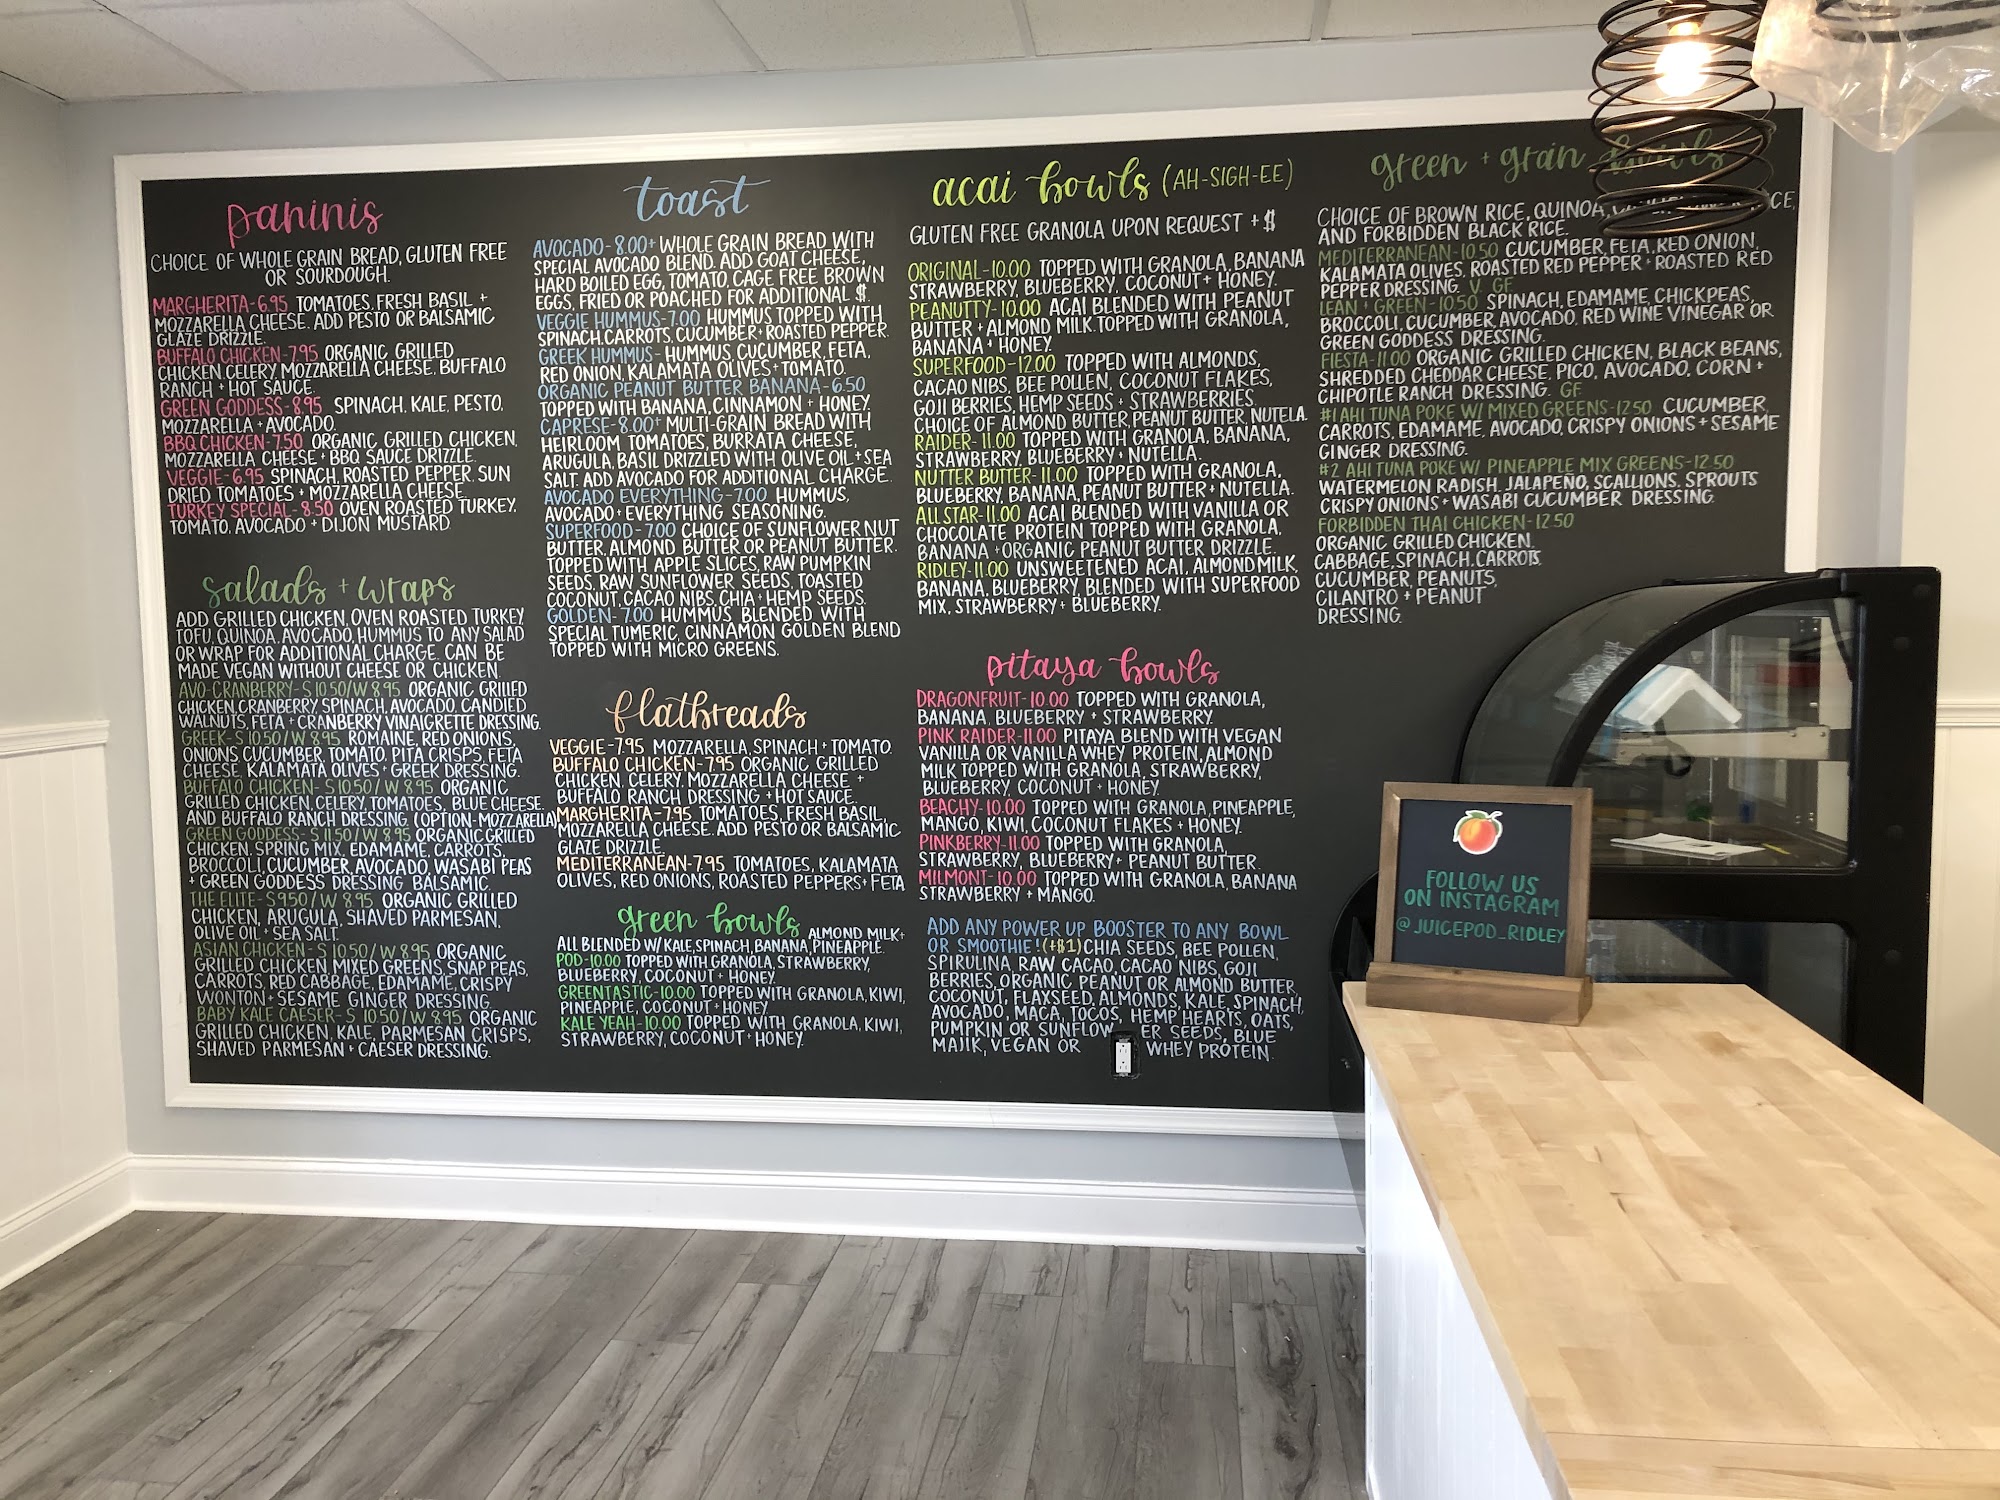 paninis
CHOICE OF WHOLE GRAIN BREAD, GLUTEN FREE
OR SOURDOUGH.
MARGHERITA-6.95 TOMATOES, FRESH BASIL +
MOZZARELLA CHEESE. ADD PESTO OR BALSAMIC
GLAZE DRIZZLE.
BUFFALO CHICKEN-7.95 ORGANIC GRILLED
CHICKEN, CELERY, MOZZARELLA CHEESE, BUFFALO
RANCH + HOT SAUCE.
GREEN GODDESS-8.95 SPINACH, KALE, PESTO,
MOZZARELLA + AVOCADO.
BBQ CHICKEN-7.50 ORGANIC GRILLED CHICKEN,
MOZZARELLA CHEESE + BBQ SAUCE DRIZZLE.
VEGGIE-6.95 SPINACH, ROASTED PEPPER, SUN
DRIED TOMATOES + MOZZARELLA CHEESE.
TURKEY SPECIAL-8.50 OVEN ROASTED TURKEY,
TOMATO, AVOCADO + DIJON MUSTARD.
salads + wraps
ADD GRILLED CHICKEN, OVEN ROASTED TURKEY,
TOFU, QUINOA, AVOCADO, HUMMUS TO ANY SALAD
OR WRAP FOR ADDITIONAL CHARGE. CAN BE
MADE VEGAN WITHOUT CHEESE OR CHICKEN.
AVO-CRANBERRY-S 10.50/W 8.95 ORGANIC GRILLED
CHICKEN, CRANBERRY, SPINACH, AVOCADO, CANDIED
WALNUTS, FETA + CRANBERRY VINAIGRETTE DRESSING.
GREEK-S 10.50/W 8.95 ROMAINE, RED ONIONS,
ONIONS, CUCUMBER, TOMATO, PITA CRISPS, FETA
CHEESE, KALAMATA OLIVES + GREEK DRESSING.
BUFFALO CHICKEN-S 10.50/W 8.95 ORGANIC
GRILLED CHICKEN, CELERY, TOMATOES, BLUE CHEESE,
AND BUFFALO RANCH DRESSING. (OPTION-MOZZARELLA)
GREEN GODDESS-S 11.50/W 8.95 ORGANIC GRILLED
CHICKEN, SPRING MIX, EDAMAME, CARROTS,
BROCCOLI, CUCUMBER, AVOCADO, WASABI PEAS
+ GREEN GODDESS DRESSING BALSAMIC.
THE ELITE-S 9.50/W 8.95 ORGANIC GRILLED
CHICKEN, ARUGULA, SHAVED PARMESAN,
OLIVE OIL + SEA SALT.
ASIAN CHICKEN-S 10.50/W 8.95 ORGANIC
GRILLED CHICKEN, MIXED GREENS, SNAP PEAS,
CARROTS, RED CABBAGE, EDAMAME, CRISPY
WONTON + SESAME GINGER DRESSING.
BABY KALE CAESER-S 10.50/W 8.95 ORGANIC
GRILLED CHICKEN, KALE, PARMESAN CRISPS,
SHAVED PARMESAN + CAESER DRESSING.
toast
AVOCADO-8.00+ WHOLE GRAIN BREAD WITH
SPECIAL AVOCADO BLEND. ADD GOAT CHEESE,
HARD BOILED EGG, TOMATO, CAGE FREE BROWN
EGGS, FRIED OR POACHED FOR ADDITIONAL $.
VEGGIE HUMMUS-7.00 HUMMUS TOPPED WITH
SPINACH, CARROTS, CUCUMBER + ROASTED PEPPER.
GREEK HUMMUS- HUMMUS, CUCUMBER, FETA,
RED ONION, KALAMATA OLIVES + TOMATO.
ORGANIC PEANUT BUTTER BANANA-6.50
TOPPED WITH BANANA, CINNAMON + HONEY.
CAPRESE-8.00+ MULTI-GRAIN BREAD WITH
HEIRLOOM TOMATOES, BURRATA CHEESE,
ARUGULA, BASIL DRIZZLED WITH OLIVE OIL + SEA
SALT. ADD AVOCADO FOR ADDITIONAL CHARGE.
AVOCADO EVERYTHING-7.00 HUMMUS,
AVOCADO + EVERYTHING SEASONING.
SUPERFOOD-7.00 CHOICE OF SUNFLOWER NUT
BUTTER, ALMOND BUTTER OR PEANUT BUTTER.
TOPPED WITH APPLE SLICES, RAW PUMPKIN
SEEDS, RAW SUNFLOWER SEEDS, TOASTED
COCONUT, CACAO NIBS, CHIA + HEMP SEEDS.
GOLDEN-7.00 HUMMUS BLENDED WITH
SPECIAL TUMERIC, CINNAMON GOLDEN BLEND
TOPPED WITH MICRO GREENS.
flatbreads
VEGGIE-7.95 MOZZARELLA, SPINACH + TOMATO.
BUFFALO CHICKEN-7.95 ORGANIC GRILLED
CHICKEN, CELERY, MOZZARELLA CHEESE +
BUFFALO RANCH DRESSING + HOT SAUCE.
MARGHERITA-7.95 TOMATOES, FRESH BASIL,
MOZZARELLA CHEESE. ADD PESTO OR BALSAMIC
GLAZE DRIZZLE.
MEDITERRANEAN-7.95 TOMATOES, KALAMATA
OLIVES, RED ONIONS, ROASTED PEPPERS + FETA
green bowls ALMOND MILK+
ALL BLENDED W/ KALE, SPINACH, BANANA, PINEAPPLE.
POD-10.00 TOPPED WITH GRANOLA, STRAWBERRY,
BLUEBERRY, COCONUT + HONEY.
GREENTASTIC-10.00 TOPPED WITH GRANOLA, KIWI,
PINEAPPLE, COCONUT + HONEY.
KALE YEAH-10.00 TOPPED WITH GRANOLA, KIWI,
STRAWBERRY, COCONUT + HONEY.
acai bowls (AH-SIGH-EE)
GLUTEN FREE GRANOLA UPON REQUEST + $
ORIGINAL-10.00 TOPPED WITH GRANOLA, BANANA
STRAWBERRY, BLUEBERRY, COCONUT + HONEY.
PEANUTTY-10.00 ACAI BLENDED WITH PEANUT
BUTTER + ALMOND MILK. TOPPED WITH GRANOLA,
BANANA + HONEY.
SUPERFOOD-12.00 TOPPED WITH ALMONDS,
CACAO NIBS, BEE POLLEN, COCONUT FLAKES,
GOJI BERRIES, HEMP SEEDS + STRAWBERRIES.
CHOICE OF ALMOND BUTTER, PEANUT BUTTER, NUTELLA.
RAIDER-11.00 TOPPED WITH GRANOLA, BANANA,
STRAWBERRY, BLUEBERRY + NUTELLA.
NUTTER BUTTER-11.00 TOPPED WITH GRANOLA,
BLUEBERRY, BANANA, PEANUT BUTTER + NUTELLA.
ALLSTAR-11.00 ACAI BLENDED WITH VANILLA OR
CHOCOLATE PROTEIN TOPPED WITH GRANOLA,
BANANA + ORGANIC PEANUT BUTTER DRIZZLE.
RIDLEY-11.00 UNSWEETENED ACAI, ALMOND MILK,
BANANA, BLUEBERRY, BLENDED WITH SUPERFOOD
MIX, STRAWBERRY + BLUEBERRY.
pitaya bowls
DRAGONFRUIT-10.00 TOPPED WITH GRANOLA,
BANANA, BLUEBERRY + STRAWBERRY.
PINK RAIDER-11.00 PITAYA BLEND WITH VEGAN
VANILLA OR VANILLA WHEY PROTEIN, ALMOND
MILK TOPPED WITH GRANOLA, STRAWBERRY,
BLUEBERRY, COCONUT + HONEY.
BEACHY-10.00 TOPPED WITH GRANOLA, PINEAPPLE,
MANGO, KIWI, COCONUT FLAKES + HONEY.
PINKBERRY-11.00 TOPPED WITH GRANOLA,
STRAWBERRY, BLUEBERRY + PEANUT BUTTER.
MILMONT-10.00 TOPPED WITH GRANOLA, BANANA
STRAWBERRY + MANGO.
ADD ANY POWER UP BOOSTER TO ANY BOWL
OR SMOOTHIE! (+$1) CHIA SEEDS, BEE POLLEN,
SPIRULINA, RAW CACAO, CACAO NIBS, GOJI
BERRIES, ORGANIC PEANUT OR ALMOND BUTTER,
COCONUT, FLAXSEED, ALMONDS, KALE, SPINACH,
AVOCADO, MACA, TOCOS, HEMP HEARTS, OATS,
PUMPKIN OR SUNFLOW ER SEEDS, BLUE
MAJIK, VEGAN OR WHEY PROTEIN.
green + grain bowls
CHOICE OF BROWN RICE, QUINOA,
AND FORBIDDEN BLACK RICE.
MEDITERRANEAN-10.50 CUCUMBER, FETA, RED ONION,
KALAMATA OLIVES, ROASTED RED PEPPER + ROASTED RED
PEPPER DRESSING. V GF
LEAN + GREEN-10.50 SPINACH, EDAMAME, CHICKPEAS,
BROCCOLI, CUCUMBER, AVOCADO, RED WINE VINEGAR OR
GREEN GODDESS DRESSING.
FIESTA-11.00 ORGANIC GRILLED CHICKEN, BLACK BEANS,
SHREDDED CHEDDAR CHEESE, PICO, AVOCADO, CORN +
CHIPOTLE RANCH DRESSING. GF
#1 AHI TUNA POKE W/ MIXED GREENS-12.50 CUCUMBER,
CARROTS, EDAMAME, AVOCADO, CRISPY ONIONS + SESAME
GINGER DRESSING.
#2 AHI TUNA POKE W/ PINEAPPLE MIX GREENS-12.50
WATERMELON RADISH, JALAPEÑO, SCALLIONS, SPROUTS
CRISPY ONIONS + WASABI CUCUMBER DRESSING.
FORBIDDEN THAI CHICKEN-12.50
ORGANIC GRILLED CHICKEN,
CABBAGE, SPINACH, CARROTS,
CUCUMBER, PEANUTS,
CILANTRO + PEANUT
DRESSING.
FOLLOW US
ON INSTAGRAM
@JUICEPOD_RIDLEY